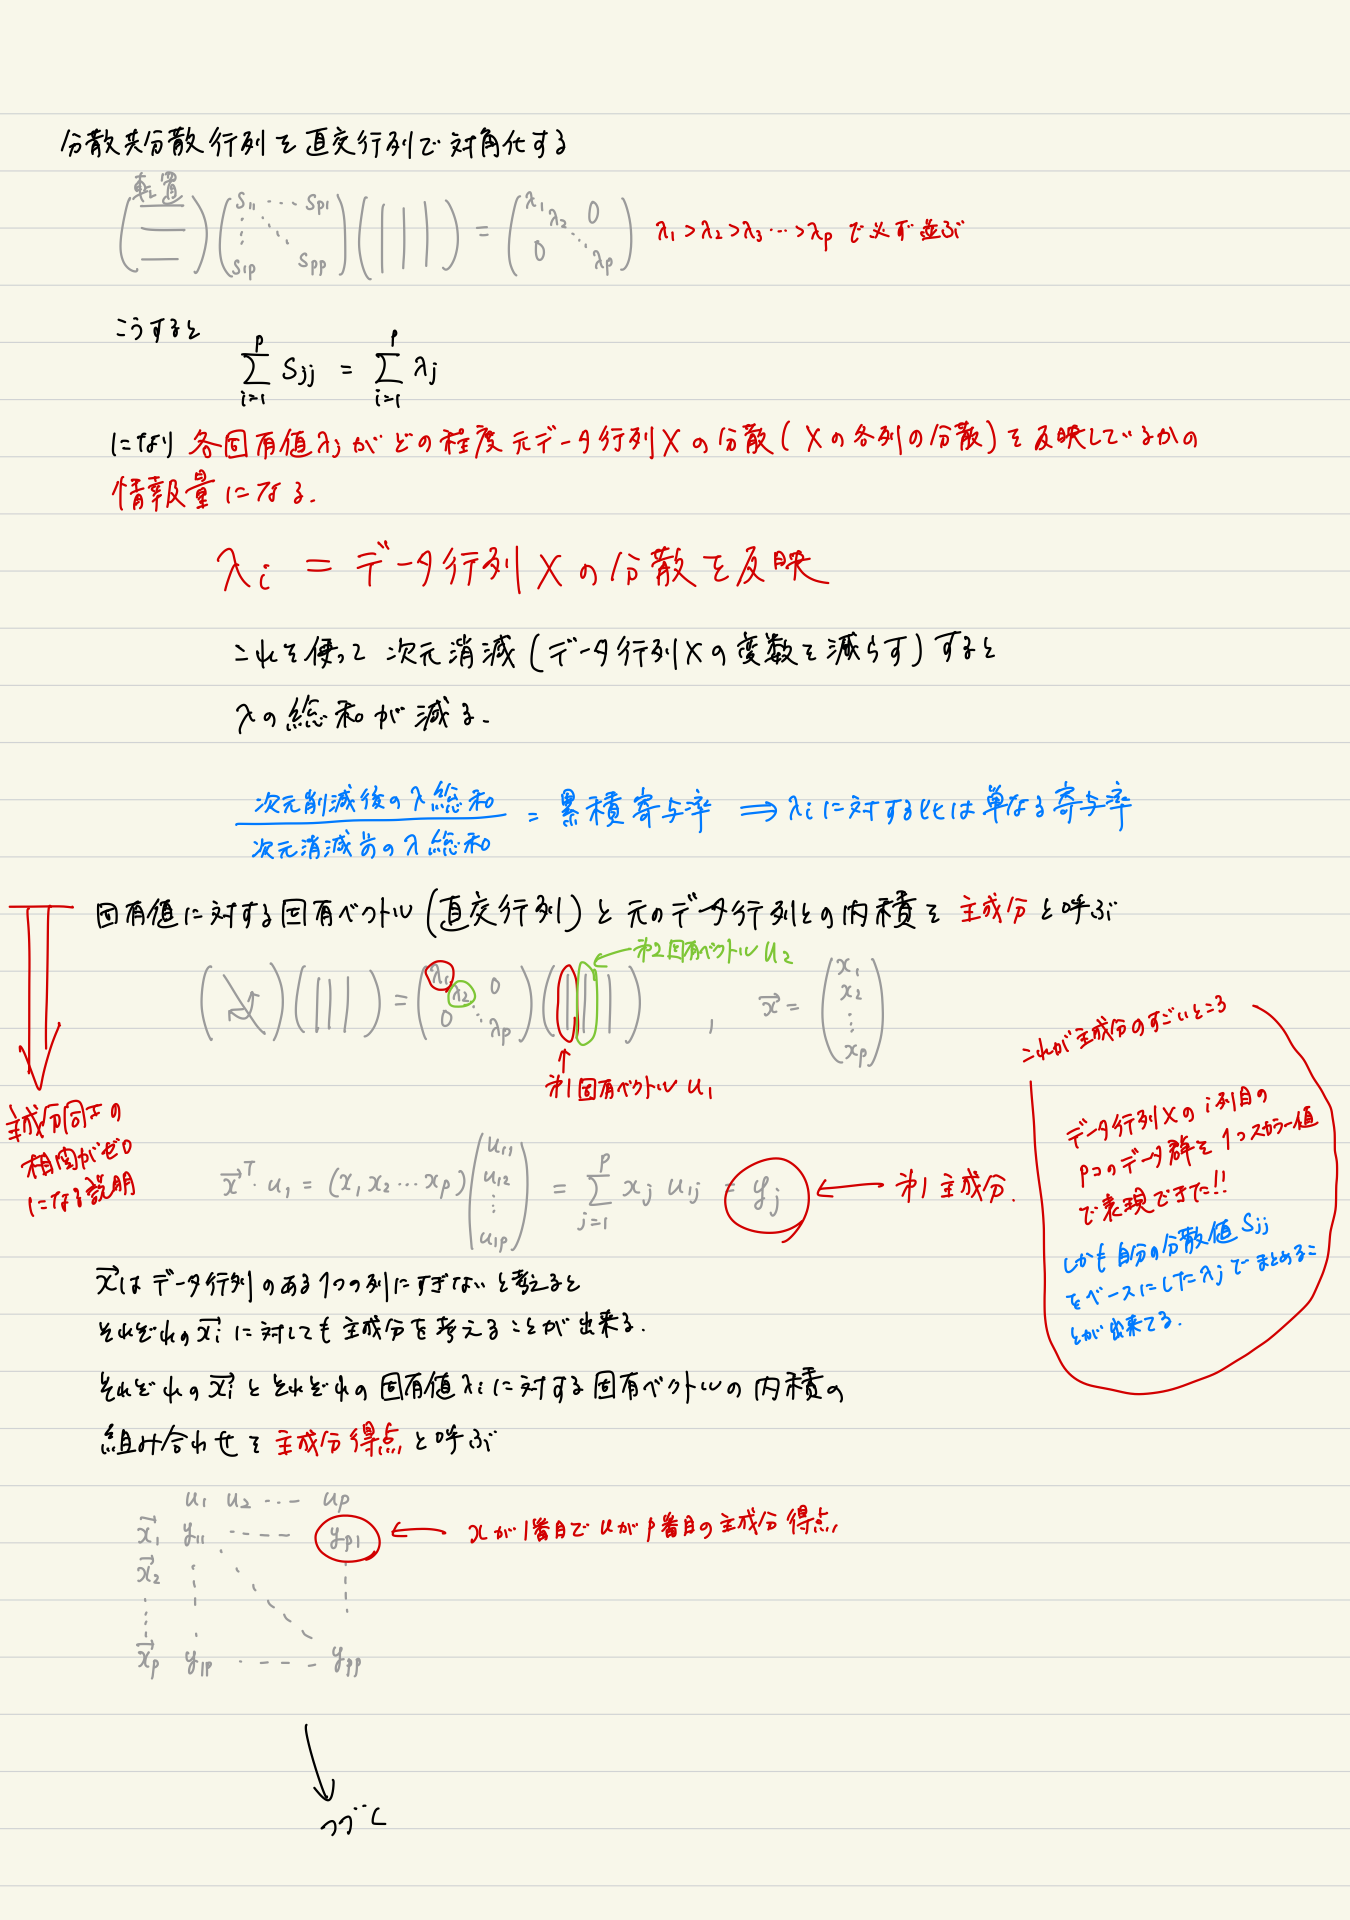 分散共分散行列を直交行列で対角化する
転置
( ) ( S11 ・・・ Sp1 S1p Spp ) ( ) = ( λ1 λ2 0 0 λp ) λ1 > λ2 > λ3 ・・・ > λp で必ず並ぶ
こうすると
p p
Σ Sjj = Σ λj
i=1 i=1
になり 各固有値λjがどの程度元データ行列Xの分散(Xの各列の分散)を反映しているかの
情報量になる.
λi = データ行列Xの分散を反映
これを使って次元消減(データ行列Xの変数を減らす)すると
λの総和が減る.
次元削減後のλ総和
次元消減前のλ総和
= 累積寄与率 ⇒ λiに対する比は単なる寄与率
固有値に対する固有ベクトル(直交行列)と元のデータ行列との内積を主成分と呼ぶ
←第2固有ベクトル u2
( ) ( ) = ( λ1 λ2 0 0 λp ) ( ) , x⃗ = ( x1 x2 ⋮ xp )
↑
第1固有ベクトル u1
主成分同士の
相関がゼロ
になる説明
x⃗ᵀ・u1 = (x1 x2 ・・・ xp) ( u11 u12 ⋮ u1p ) = Σ xj u1j = yj ← 第1主成分.
p
j=1
これが主成分のすごいところ
データ行列Xのi列目の
pコのデータ群を1つスカラー値
で表現できた!!
しかも自分の分散値Sjj
をベースにしたλjでまとめるこ
とが出来てる.
x⃗はデータ行列のある1つの列にすぎないと考えると
それぞれのx⃗iに対しても主成分を考えることが出来る.
それぞれのx⃗iとそれぞれの固有値λiに対する固有ベクトルの内積の
組み合わせを主成分得点と呼ぶ
u1 u2 ・・・ up
x⃗1 y11 ・・・ yp1 ← xが1番目でuがp番目の主成分得点
x⃗2
x⃗p y1p ・・・ ypp
つづく